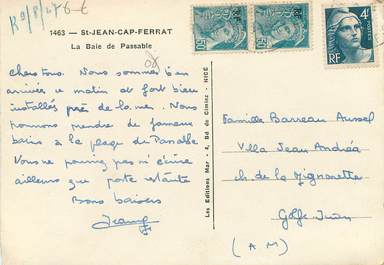 R 9/8/47
6-6
1463 – St-JEAN-CAP-FERRAT
La Baie de Passable
Chers tous. Nous sommes bien
arrivés ce matin et fort bien
installés près de la mer. Nous
pouvons prendre de fameux
bains à la plage de Passable
Vous ne pouvez pas m'écrire
ailleurs que poste restante
Bons baisers
Les Editions Mar - 4, Bd de Cimiez - NICE
50
50
4F
POSTES
RF
Famille Barreau Aussel
Villa Jean Andréa
ch. de la Mignonette
Golfe Juan
(A M)